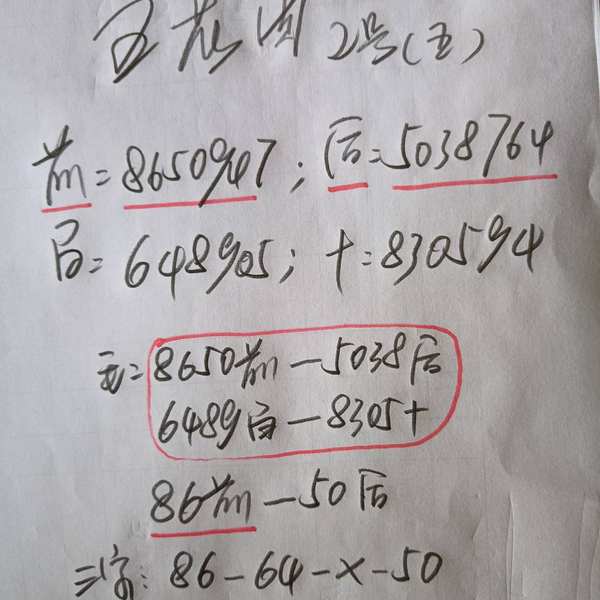 百花园 2号(五)
前=8650947;后=5038764
百=648905;十=830594
重=8650前—5038后
6489百—8305十
86前—50后
三字:86-64-X-50